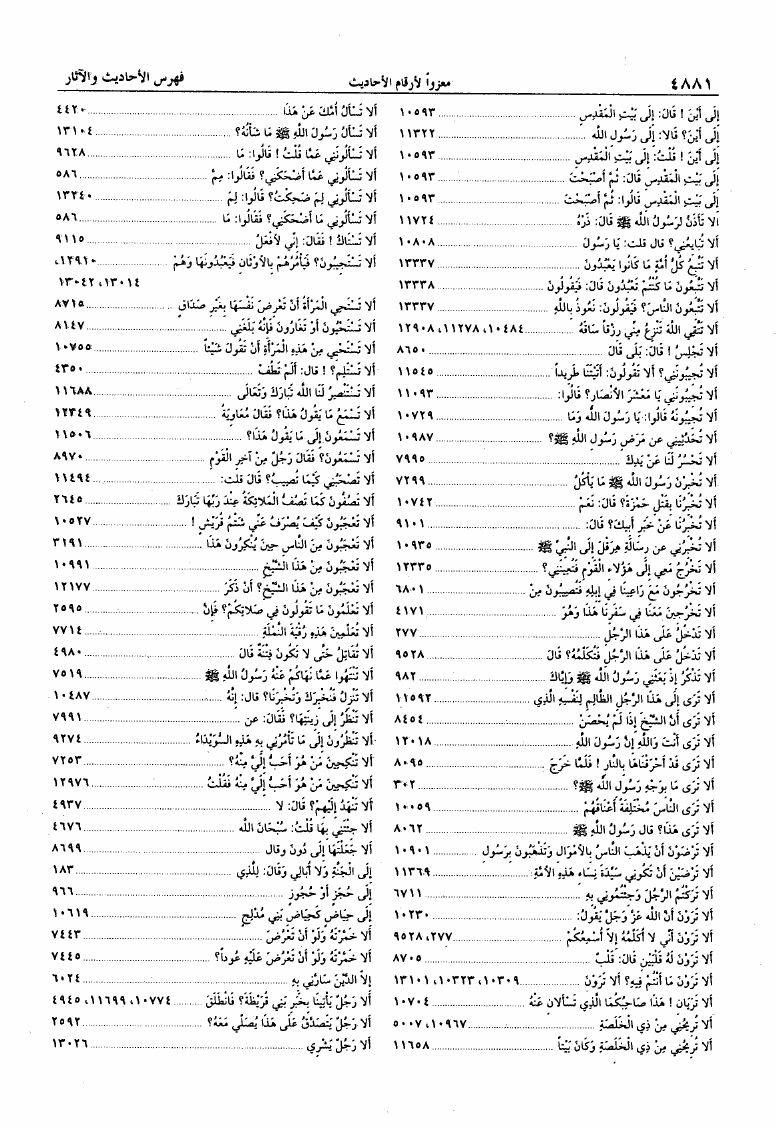 ٤٨٨١ معزواً لأرقام الأحاديث فهرس الأحاديث والآثار
إلَى أَيْنَ ! قَالَ: إلَى بَيْتِ الْمَقْدِسِ ........ ١٠٥٩٣
إلَى أَيْنَ؟ قَالَا: إلَى رَسُولِ اللَّه ........ ١١٣٢٢
إلَى أَيْنَ ! قُلْتُ: إلَى بَيْتِ الْمَقْدِسِ ........ ١٠٥٩٣
إلَى بَيْتِ الْمَقْدِسِ قَالَ: ثُمَّ أَصْبَحْتَ ........ ١٠٥٩٣
إلَى بَيْتِ الْمَقْدِسِ قَالُوا: ثُمَّ أَصْبَحْتَ ........ ١٠٥٩٣
ألا تَأْذَنُ لِرَسُولِ اللَّه ﷺ قَالَ: ذَرْهُ ........ ١١٧٢٤
ألَا تُبَايِعُنِي؟ قال قلت: يَا رَسُولَ ........ ١٠٨٠٨
ألَا تَتَّبِعُ كُلُّ أُمَّةٍ مَا كَانُوا يَعْبُدُونَ ........ ١٣٣٣٧
ألَا تَتَّبِعُونَ مَا كُنْتُمْ تَعْبُدُونَ قَالَ: فَيَقُولُونَ ........ ١٣٣٣٨
ألَا تَتَّبِعُونَ النَّاسَ؟ فَيَقُولُونَ: نَعُوذُ بِاللَّهِ ........ ١٣٣٣٧
ألَا تَتَّقِي اللَّهَ تَنْزِعُ مِنِّي رِزْقاً سَاقَهُ ........ ١٠٤٨٤، ١١٢٧٨، ١٢٩٠٨
ألَا تَجْلِسُ ! قَالَ: بَلَى قَالَ ........ ٨٦٥٠
ألَا تُجِيبُونَنِي؟ ألَا تَقُولُونَ: أَتَيْتَنَا طَرِيداً ........ ١١٥٤٥
ألَا تُجِيبُونَنِي يَا مَعْشَرَ الأَنْصَارِ؟ قَالُوا: ........ ١١٠٩٣
ألَا تُجِيبُونَهُ قَالُوا: يَا رَسُولَ اللَّه وَمَا ........ ١٠٧٢٩
ألَا تُحَدِّثِينِي عن مَرَضِ رَسُولِ اللَّهِ ﷺ؟ ........ ١٠٩٨٧
ألَا تَحْسُرُ لَنَا عَنْ يَدِكَ ........ ٧٩٩٥
ألَا تُخْبِرْنَ رَسُولَ اللَّه ﷺ مَا يَأْكُلُ ........ ٧٢٩٩
ألَا تُخْبِرُنَا بِقَتْلِ حَمْزَةَ؟ قَالَ: نَعَمْ ........ ١٠٧٤٢
ألَا تُخْبِرُنَا عَنْ خَبَرِ أَبِيكَ؟ قَالَ: ........ ٩١٠١
ألَا تُخْبِرُنِي عن رِسَالَةِ هِرَقْلَ إلَى النَّبِيِّ ﷺ ........ ١٠٩٣٥
ألَا تَخْرُجُ مَعِي إلَى هَؤُلَاءِ الْقَوْمِ فَتُعِينُنِي؟ ........ ١٢٣٣٥
ألَا تَخْرُجُونَ مَعَ رَاعِينَا فِي إِبِلِهِ فَتُصِيبُونَ مِنْ ........ ٦٨٠١
ألَا تَخْرُجِينَ مَعَنَا فِي سَفَرِنَا هَذَا وَهُوَ ........ ٤١٧١
ألَا تَدْخُلُ عَلَى هَذَا الرَّجُلِ ........ ٢٧٧
ألَا تَدْخُلُ عَلَى هَذَا الرَّجُلِ فَتُكَلِّمُهُ؟ قَالَ ........ ٩٥٢٨
ألَا تَذْكُرُ إذْ بَعَثَنِي رَسُولُ اللَّهِ ﷺ وَإِيَّاكَ ........ ٩٨٢
ألَا تَرَى إلَى هَذَا الرَّجُلِ الظَّالِمِ لِنَفْسِهِ الَّذِي ........ ١١٥٩٢
ألَا تَرَى أَنَّ الشَّيْخَ إذَا لَمْ يُحْصَنْ ........ ٨٤٥٤
ألَا تَرَى أَنْتَ وَاللَّهِ إنَّ رَسُولَ اللَّهِ ........ ١٢٠١٨
ألَا تَرَى قَدْ أَحْرَقْنَاهَا بِالنَّارِ ! فَلَمَّا خَرَجَ ........ ٨٠٩٥
ألَا تَرَى مَا بِوَجْهِ رَسُولِ اللَّهِ ﷺ؟ ........ ٣٠٢
ألَا تَرَى النَّاسَ مُخْتَلِفَةً أَعْنَاقُهُمْ ........ ١٠٠٥٩
ألَا تَرَى هَذَا؟ قال رَسُولُ اللَّهِ ﷺ ........ ٨٠٦٢
ألَا تَرْضَوْنَ أَنْ يَذْهَبَ النَّاسُ بِالأَمْوَالِ وَتَذْهَبُونَ بِرَسُولِ ........ ١٠٩٠١
ألَا تَرْضَيْنَ أَنْ تَكُونِي سَيِّدَةَ نِسَاءِ هَذِهِ الأُمَّةِ ........ ١١٣٦٩
ألَا تَرَكْتُمُ الرَّجُلَ وَجِئْتُمُونِي بِهِ ........ ٦٧١١
ألَا تَرَوْنَ أَنَّ اللَّهَ عَزَّ وَجَلَّ يَقُولُ: ........ ١٠٢٣٠
ألَا تَرَوْنَ أَنِّي لَا أُكَلِّمُهُ إلَّا أُسْمِعُكُمْ ........ ٢٧٧، ٩٥٢٨
ألَا تَرَوْنَ لَهُ قَلْبَيْنِ قَالَ: قَلْبٌ ........ ٨٧٠٥
ألَا تَرَوْنَ مَا أَنْتُمْ فِيهِ؟ ألَا تَرَوْنَ ........ ١٠٣٠٩، ١٠٣٢٣، ١٣١٠١
ألَا تَرَيَانِ ! هَذَا صَاحِبُكُمَا الَّذِي تَسْأَلَانِ عَنْهُ ........ ١٠٧٠٤
ألَا تُرِيحُنِي مِنْ ذِي الْخَلَصَةِ ........ ١٠٩٦٧، ٥٠٠٧
ألَا تُرِيحُنِي مِنْ ذِي الْخَلَصَةِ وَكَانَ بَيْتاً ........ ١١٦٥٨
ألَا تَسْأَلُ أُمَّكَ عَنْ هَذَا ........ ٤٤٢٠
ألَا تَسْأَلُ رَسُولَ اللَّهِ ﷺ مَا شَأْنُهُ؟ ........ ١٣١٠٤
ألَا تَسْأَلُونَنِي عَمَّا قُلْتُ ! قَالُوا: مَا ........ ٩٦٢٨
ألَا تَسْأَلُونِي عَمَّا أَضْحَكَنِي؟ فَقَالُوا: مِمَّ ........ ٥٨٦
ألَا تَسْأَلُونِي لِمَ ضَحِكْتُ؟ قَالُوا: لِمَ ........ ١٣٢٤٠
ألَا تَسْأَلُونِي مَا أَضْحَكَنِي؟ فَقَالُوا: مَا ........ ٥٨٦
ألَا تَسْتَاكُ ! فَقَالَ: إِنِّي لأَفْعَلُ ........ ٩١١٥
ألَا تَسْتَجِيبُونَ؟ فَيَأْمُرُهُمْ بِالأَوْثَانِ فَيَعْبُدُونَهَا وَهُمْ ........ ١٢٩١٠،
١٣٠١٤، ١٣٠٤٢
ألَا تَسْتَحِي الْمَرْأَةُ أَنْ تَعْرِضَ نَفْسَهَا بِغَيْرِ صَدَاقٍ ........ ٨٧١٥
ألَا تَسْتَحْيُونَ أَوْ تَغَارُونَ فَإِنَّهُ بَلَغَنِي ........ ٨١٤٧
ألَا تَسْتَحْيِي مِنْ هَذِهِ الْمَرْأَةِ أَنْ تَقُولَ شَيْئاً ........ ١٠٧٥٥
ألَا تَسْتَلِمُ؟ ! قال: أَلَمْ تَطُفْ ........ ٤٣٥٠
ألَا تَسْتَنْصِرُ لَنَا اللَّه تَبَارَكَ وَتَعَالَى ........ ١١٦٨٨
ألَا تَسْمَعُ مَا يَقُولُ هَذَا؟ فَقَالَ مُعَاوِيَةُ ........ ١٢٣٤٩
ألَا تَسْمَعُونَ إلَى مَا يَقُولُ هَذَا؟ ........ ١١٥٠٦
ألَا تَسْمَعُونَ؟ فَقَالَ رَجُلٌ مِنْ آخِرِ الْقَوْمِ ........ ٨٩٧٠
ألَا تَصْحَبُنِي كَيْمَا تُصِيبَ؟ قَالَ قلت: ........ ١١٤٩٤
ألَا تَصُفُّونَ كَمَا تَصُفُّ الْمَلَائِكَةُ عِنْدَ رَبِّهَا تَبَارَكَ ........ ٢٦٤٥
ألَا تَعْجَبُونَ كَيْفَ يُصْرَفُ عَنِّي شَتْمُ قُرَيْشٍ ! ........ ١٠٥٢٧
ألَا تَعْجَبُونَ مِنَ النَّاسِ حِينَ يُنْكِرُونَ هَذَا ........ ٣١٩١
ألَا تَعْجَبُونَ مِنْ هَذَا الشَّيْخِ ........ ١٠٩٩١
ألَا تَعْجَبُونَ مِنْ هَذَا الشَّيْخِ؟ أَنْ ذَكَرَ ........ ١٢١٧٧
ألَا تَعْلَمُونَ مَا تَقُولُونَ فِي صَلَاتِكُمْ؟ فَإِنَّ ........ ٢٥٩٥
ألَا تُعَلِّمِينَ هَذِهِ رُقْيَةَ النَّمْلَةِ ........ ٧٧١٤
ألَا تُقَاتِلُ حَتَّى لَا تَكُونَ فِتْنَةٌ قَالَ ........ ٤٩٨٠
ألَا تَنْتَهُوا عَمَّا نَهَاكُمْ عَنْهُ رَسُولُ اللَّهِ ﷺ ........ ٧٥١٩
ألَا تَنْزِلُ فَنُخْبِرَكَ وَتُخْبِرَنَا؟ قال: إنَّهُ ........ ١٠٤٨٧
ألَا تَنْظُرُ إلَى زِينَتِهَا؟ فَقَالَ: عن ........ ٧٩٩١
ألَا تَنْظُرُونَ إلَى مَا تَأْمُرُنِي بِهِ هَذِهِ السُّوَيْدَاءُ ........ ٩٢٧٤
ألَا تَنْكِحِينَ مَنْ هُوَ أَحَبُّ إلَيَّ مِنْهُ؟ ........ ٧٢٥٣
ألَا تَنْكِحِينَ مَنْ هُوَ أَحَبُّ إلَيَّ مِنْهُ فَقُلْتُ ........ ١٢٩٧٦
ألَا تَنْهَدُ إلَيْهِمْ؟ قَالَ: لَا ........ ٤٩٣٧
ألَا جِئْتَنِي بِهَا قُلْتُ: سُبْحَانَ اللَّه ........ ٤٦٧٦
ألَا جَعَلْتَهَا إلَى دُونَ وقال ........ ٨٦٩٩
إلَى الْجَنَّةِ وَلَا أُبَالِي وَقَالَ: لِلَّذِي ........ ١٨٣
إلَى حُجَزٍ أَوْ حُجُوزٍ ........ ٩٦٦
إلَى حِيَاضٍ كَحِيَاضِ بَنِي مُدْلِجٍ ........ ١٠٦١٩
ألَا خَمَّرْتَهُ وَلَوْ أَنْ تَعْرُضَ ........ ٧٤٤٣
ألَا خَمَّرْتَهُ وَلَوْ أَنْ تَعْرُضَ عَلَيْهِ عُوداً؟ ........ ٧٤٤٥
إلاَّ الدَّيْنَ سَارَّنِي بِهِ ........ ٦٠٢٤
ألَا رَجُلٌ يَأْتِينَا بِخَبَرِ بَنِي قُرَيْظَةَ؟ فَانْطَلَقَ ........ ١٠٧٧٤، ١١٦٩٩، ٤٩٤٥
ألَا رَجُلٌ يَتَصَدَّقُ عَلَى هَذَا يُصَلِّي مَعَهُ؟ ........ ٢٥٩٢
ألَا رَجُلٌ يَشْرِي ........ ١٣٠٢٦